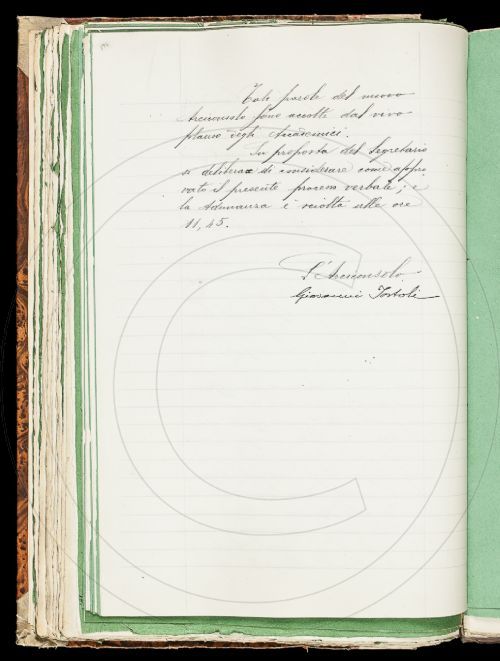 Tali parole del nuovo
Arciconsolo sono accolte dal vivo
plauso degli Accademici.
Su proposta del Segretario
si delibera di considerare come appro
vato il presente processo verbale; e
la Adunanza è sciolta alle ore
11,45.
L'Arciconsolo
Giovanni Tortoli